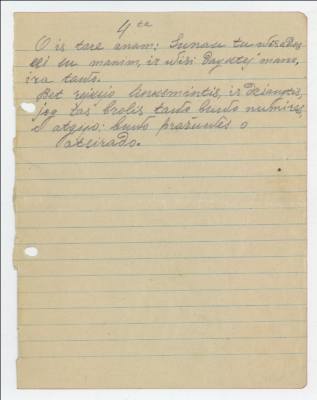 4 ta
O is tare anam; Sunau tu wisados
esi su manim, ir wisi dayktej mane,
ira tawo.
Bet reikejo linksmintis, ir dziaugtis,
jog tas brolis tawo buwo numires,
o atgijo; buwo prazuwes o
atsirado.